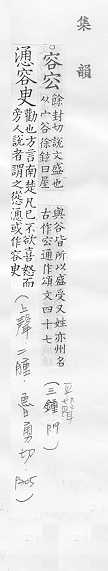 集韻
○容㝐
餘封切說文盛也
从宀谷徐鉉曰屋
與谷皆所以盛受又姓亦州名
古作㝐通作頌文四十七
(三鍾韻)
平聲
慂容㕜
勸也方言南楚凡已不欲喜怒而
旁人說者謂之慫慂或作容㕜
(上聲二腫·魯勇切·P305)